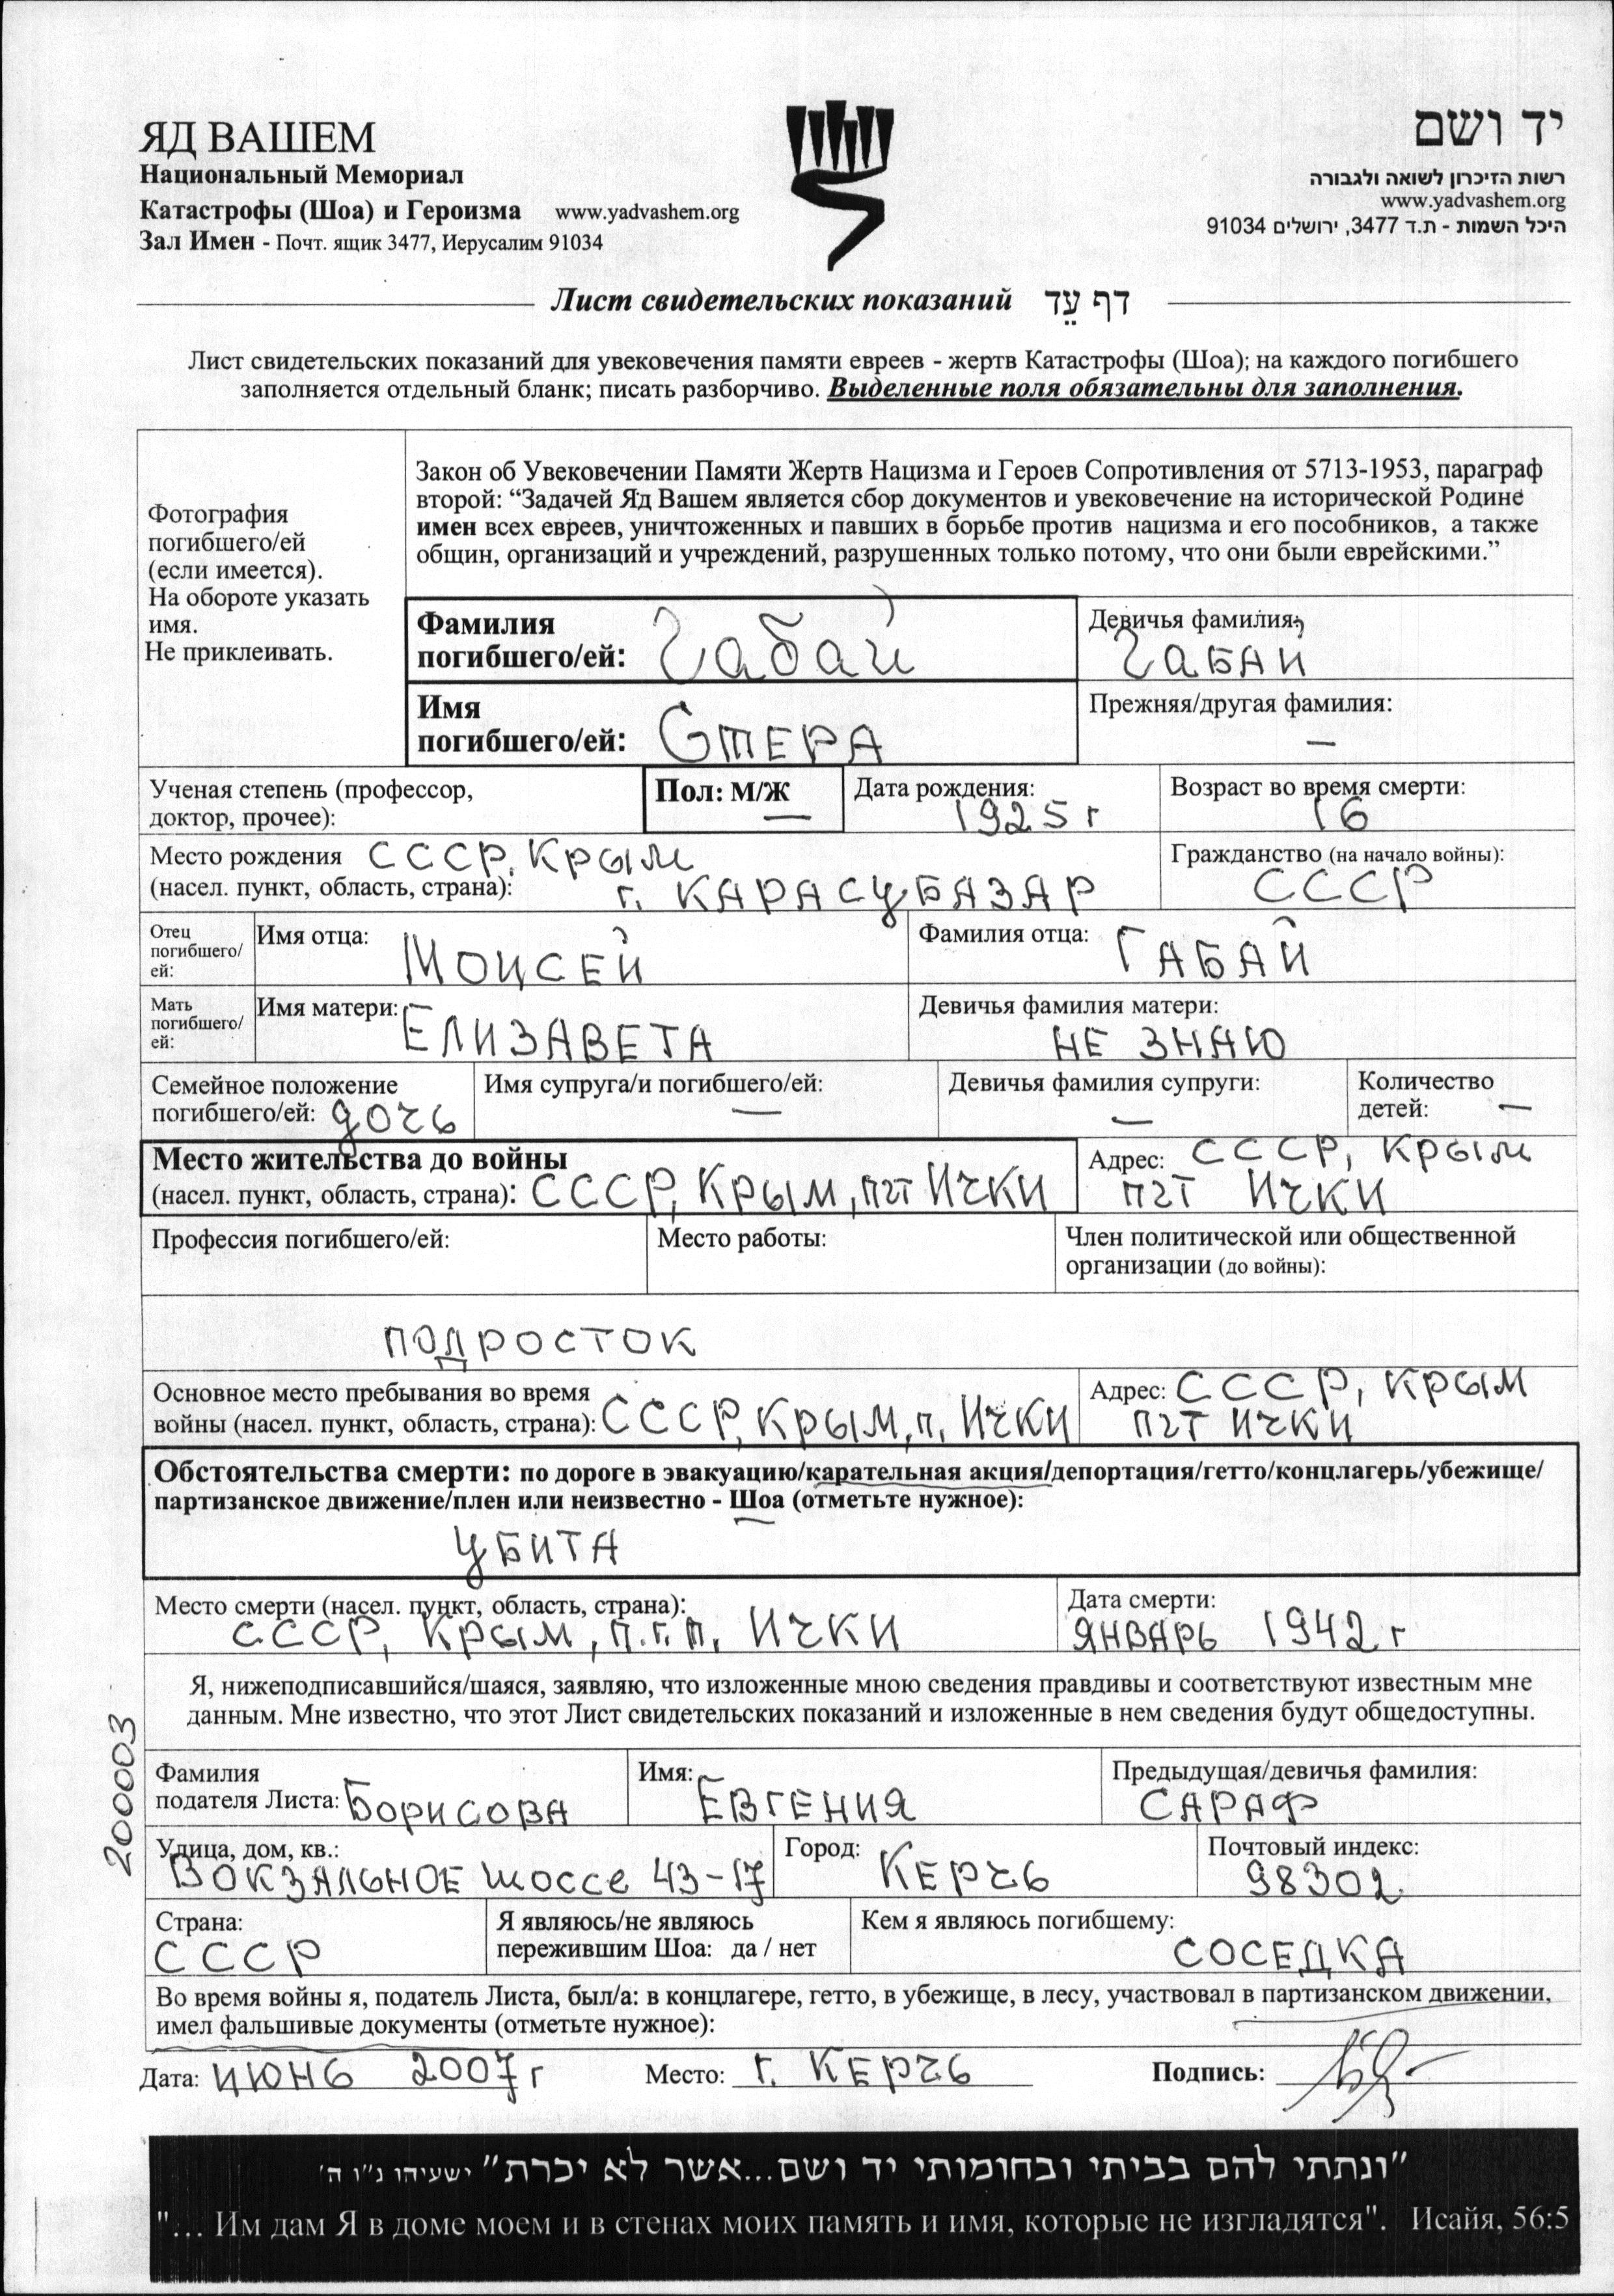 ЯД ВАШЕМ
Национальный Мемориал
Катастрофы (Шоа) и Героизма www.yadvashem.org
Зал Имен - Почт. ящик 3477, Иерусалим 91034
יד ושם
רשות הזיכרון לשואה ולגבורה
www.yadvashem.org
היכל השמות - ת.ד 3477, ירושלים 91034
Лист свидетельских показаний דף עֵד
Лист свидетельских показаний для увековечения памяти евреев - жертв Катастрофы (Шоа); на каждого погибшего
заполняется отдельный бланк; писать разборчиво. Выделенные поля обязательны для заполнения.
Фотография
погибшего/ей
(если имеется).
На обороте указать
имя.
Не приклеивать.
Закон об Увековечении Памяти Жертв Нацизма и Героев Сопротивления от 5713-1953, параграф
второй: “Задачей Яд Вашем является сбор документов и увековечение на исторической Родине
имен всех евреев, уничтоженных и павших в борьбе против нацизма и его пособников, а также
общин, организаций и учреждений, разрушенных только потому, что они были еврейскими.”
Фамилия
погибшего/ей: Габай
Девичья фамилия:
Габай
Имя
погибшего/ей: Стера
Прежняя/другая фамилия:
—
Ученая степень (профессор,
доктор, прочее):
Пол: М/Ж
Дата рождения:
1925 г
Возраст во время смерти:
16
Место рождения СССР, Крым
(насел. пункт, область, страна): г. КАРАСУБАЗАР
Гражданство (на начало войны):
СССР
Отец
погибшего/
ей:
Имя отца: МОИСЕЙ
Фамилия отца: ГАБАЙ
Мать
погибшего/
ей:
Имя матери: ЕЛИЗАВЕТА
Девичья фамилия матери:
НЕ ЗНАЮ
Семейное положение
погибшего/ей: дочь
Имя супруга/и погибшего/ей:
—
Девичья фамилия супруги:
—
Количество
детей: —
Место жительства до войны
(насел. пункт, область, страна): СССР, Крым, пгт Ички
Адрес: СССР, Крым
пгт Ички
Профессия погибшего/ей:
Место работы:
Член политической или общественной
организации (до войны):
ПОДРОСТОК
Основное место пребывания во время
войны (насел. пункт, область, страна): СССР, Крым, п. Ички
Адрес: СССР, Крым
пгт Ички
Обстоятельства смерти: по дороге в эвакуацию/карательная акция/депортация/гетто/концлагерь/убежище/
партизанское движение/плен или неизвестно - Шоа (отметьте нужное):
УБИТА
Место смерти (насел. пункт, область, страна):
СССР, Крым, п.г.т. Ички
Дата смерти:
ЯНВАРЬ 1942 г
Я, нижеподписавшийся/шаяся, заявляю, что изложенные мною сведения правдивы и соответствуют известным мне
данным. Мне известно, что этот Лист свидетельских показаний и изложенные в нем сведения будут общедоступны.
200003
Фамилия
подателя Листа: БОРИСОВА
Имя: ЕВГЕНИЯ
Предыдущая/девичья фамилия:
САРАФ
Улица, дом, кв.:
ВОКЗАЛЬНОЕ шоссе 43-17
Город: КЕРЧЬ
Почтовый индекс:
98302
Страна:
СССР
Я являюсь/не являюсь
пережившим Шоа: да / нет
Кем я являюсь погибшему:
СОСЕДКА
Во время войны я, податель Листа, был/а: в концлагере, гетто, в убежище, в лесу, участвовал в партизанском движении,
имел фальшивые документы (отметьте нужное):
Дата: ИЮНЬ 2007 г Место: г. КЕРЧЬ Подпись:
”ונתתי להם בביתי ובחומותי יד ושם...אשר לא יכרת” ישעיהו נ”ו ה'
"... Им дам Я в доме моем и в стенах моих память и имя, которые не изгладятся". Исайя, 56:5